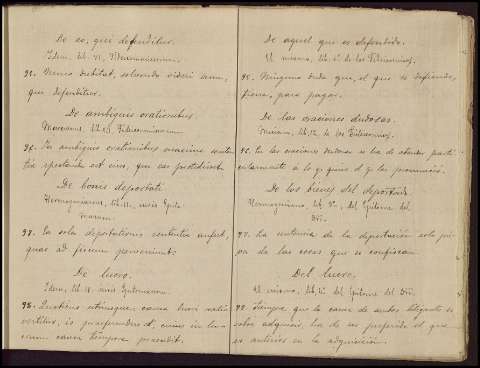 De eo, qui defenditur.
Idem, lib.
95. Nemo dubitat, solvendo videri eum,
qui defenditur.
De ambiguis orationibus
Marcianus, lib. 12, Fideicommissorum.
96. In ambiguis orationibus maxime senten
tia spectanda est eius, qui eas protulisset.
De bonis deportati
Hermogenianus, lib. iuris Epito
marum.
97. In sola deportationis sententia aufert,
quae ad fiscum perveniunt.
De lucro.
Idem, lib. iuris Epitomarum.
98. Quoties utriusque, causa lucri ratio
vertitur, is praeferendus est, cuius in lu-
crum causa tempore praecedit.
De aquel que es defendido.
El mismo, lib. de los Fideicomisos.
95. Ninguno duda que, el que es defendido,
tiene, para pagar.
De las oraciones dudosas.
Marciano, lib. 12, de los Fideicomisos.
96. En las oraciones dudosas se ha de atender parti-
cularmente a lo q. quiso el q. las pronuncia.
De los bienes del deportado
Hermogeniano, lib. del Epitome del
Dro.
97. La sentencia de la deportación solo pri-
va de las cosas que se confiscan.
Del lucro.
El mismo, lib. del Epitome del Dro.
98. Siempre que la causa de ambos litigantes es
sobre adquirir, ha de ser preferido el que
es anterior en la adquisición.